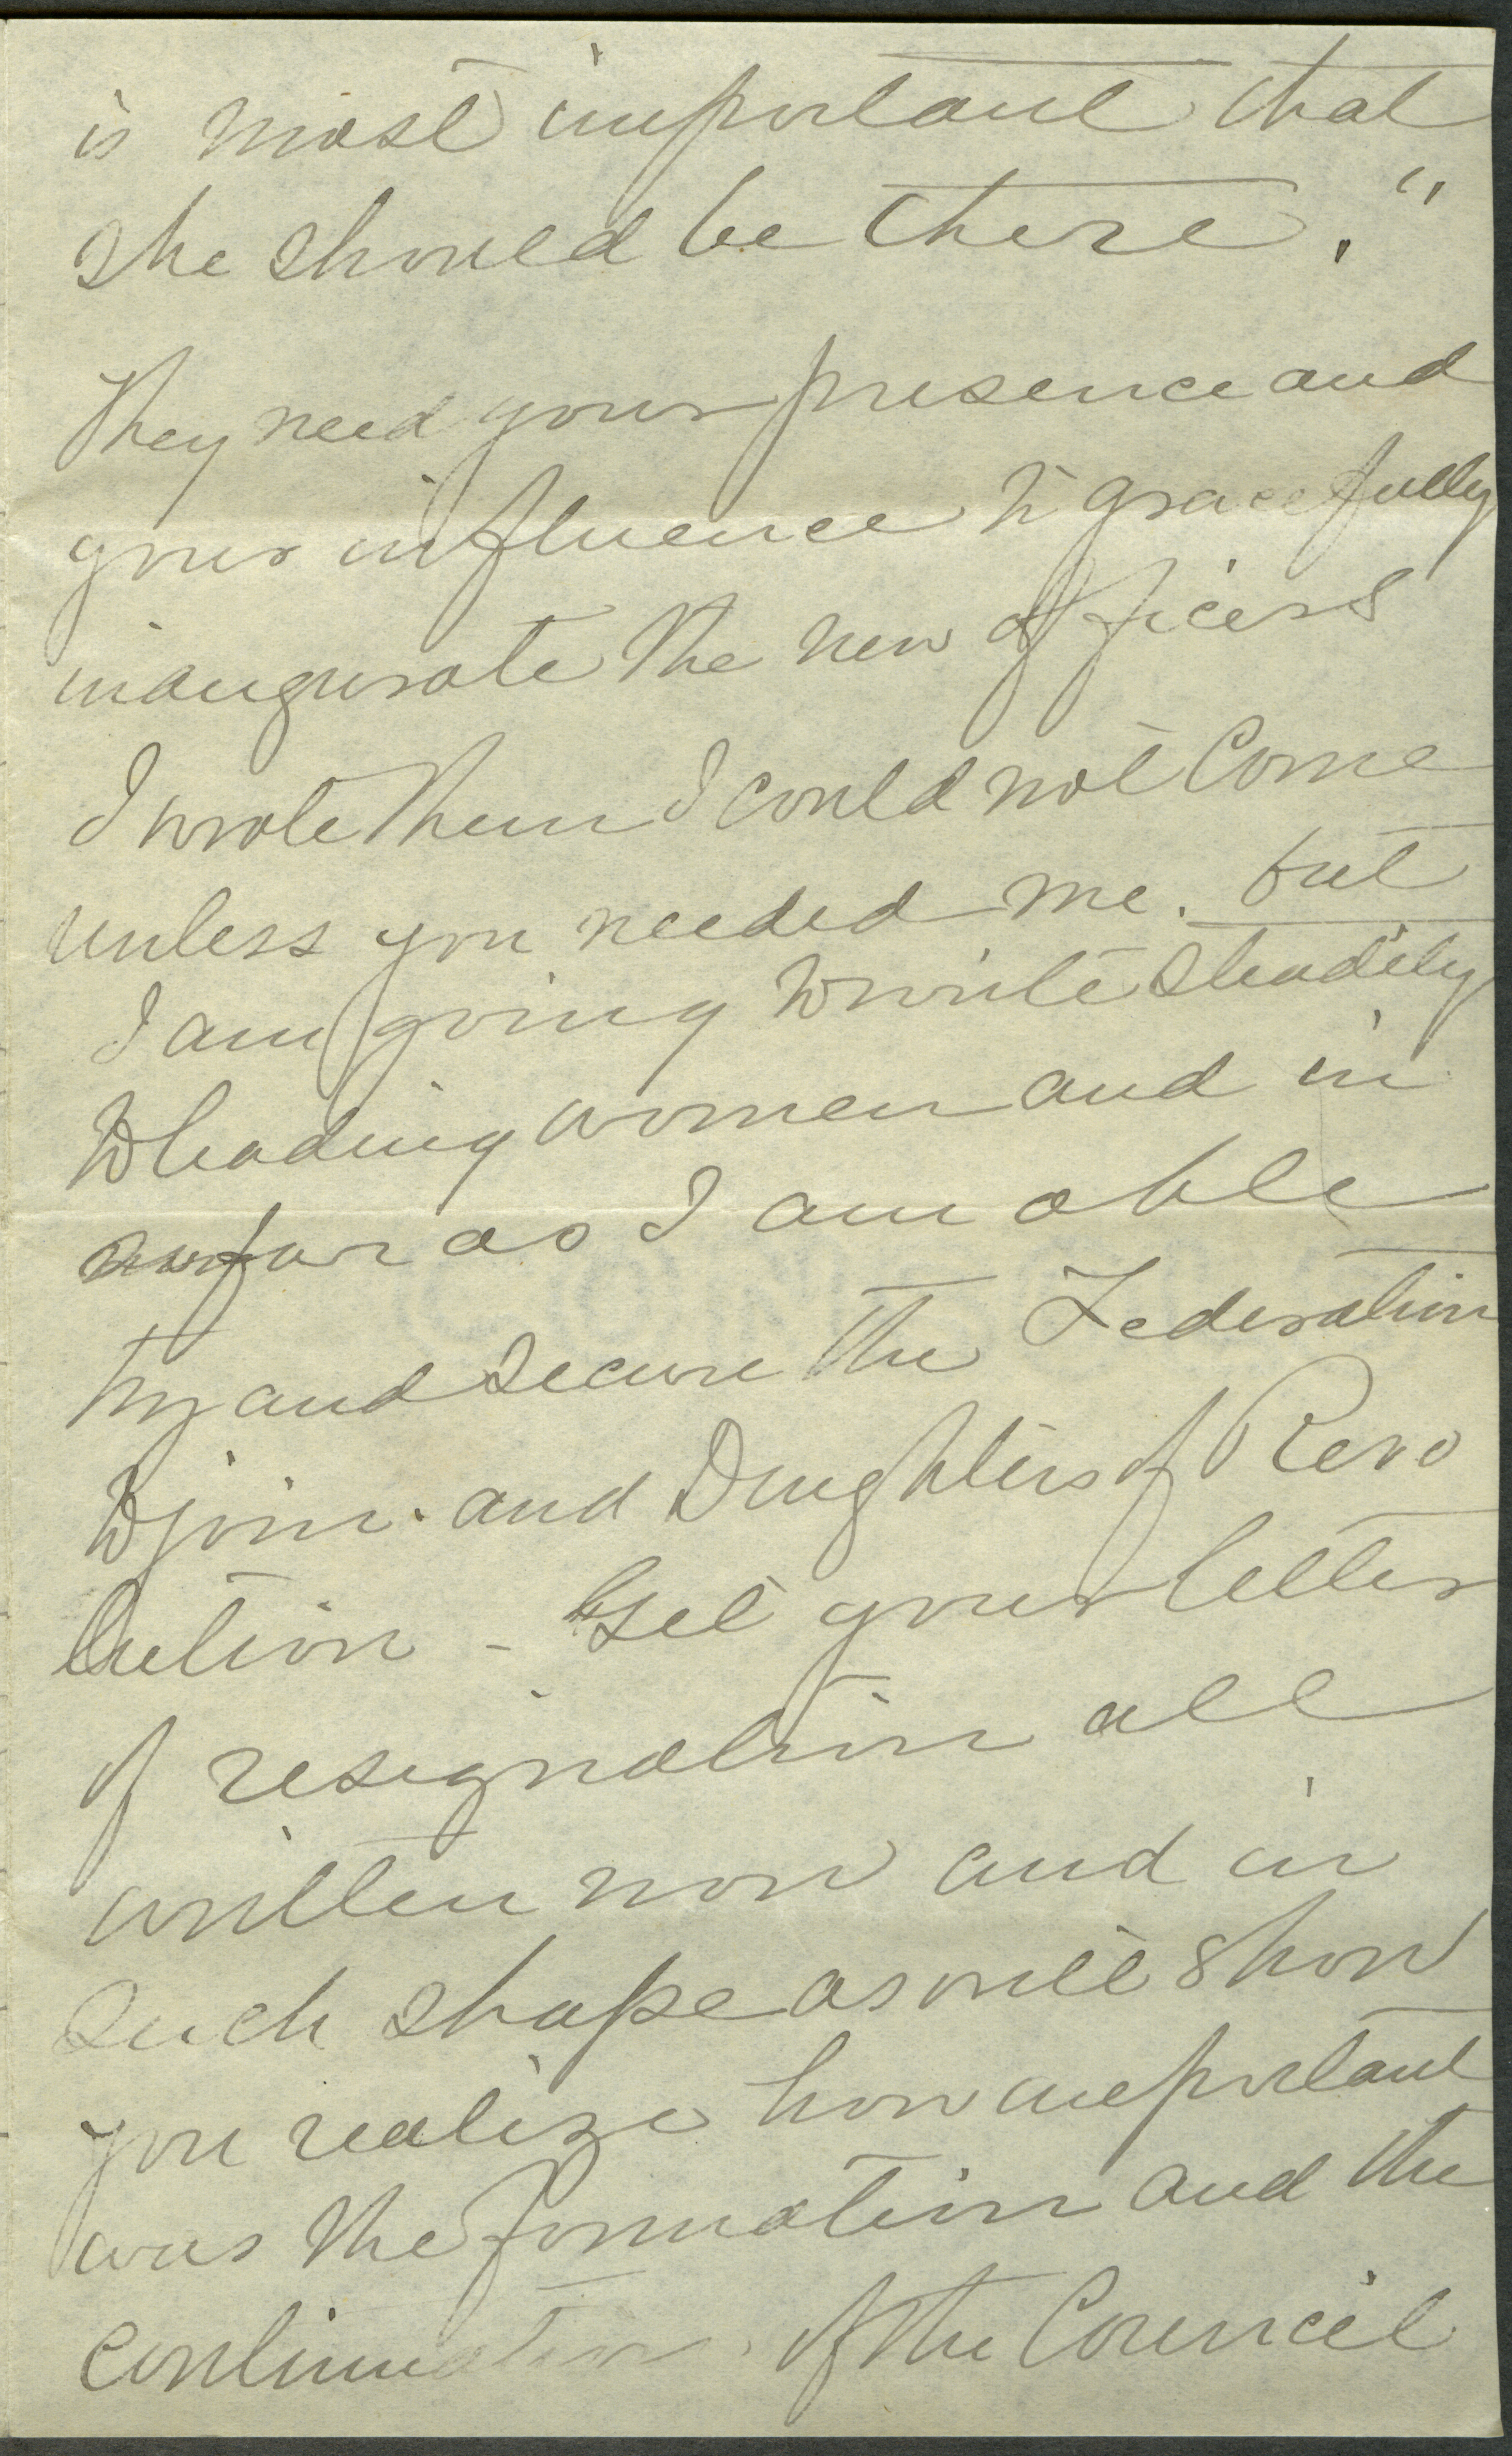 is most important that
she should be there."
They need your presence and
your influence to gracefully
inaugurate the new officers
I wrote them I could not Come
unless you needed me. but
I am going to write steadily
to leading women and in
so far as I am able
try and secure the Federation
to join. and Daughters of Revo
lution - Get your letter
of resignation all
written now and in
Such shape as will show
you realize how important
was the formation and the
continuation of the Council